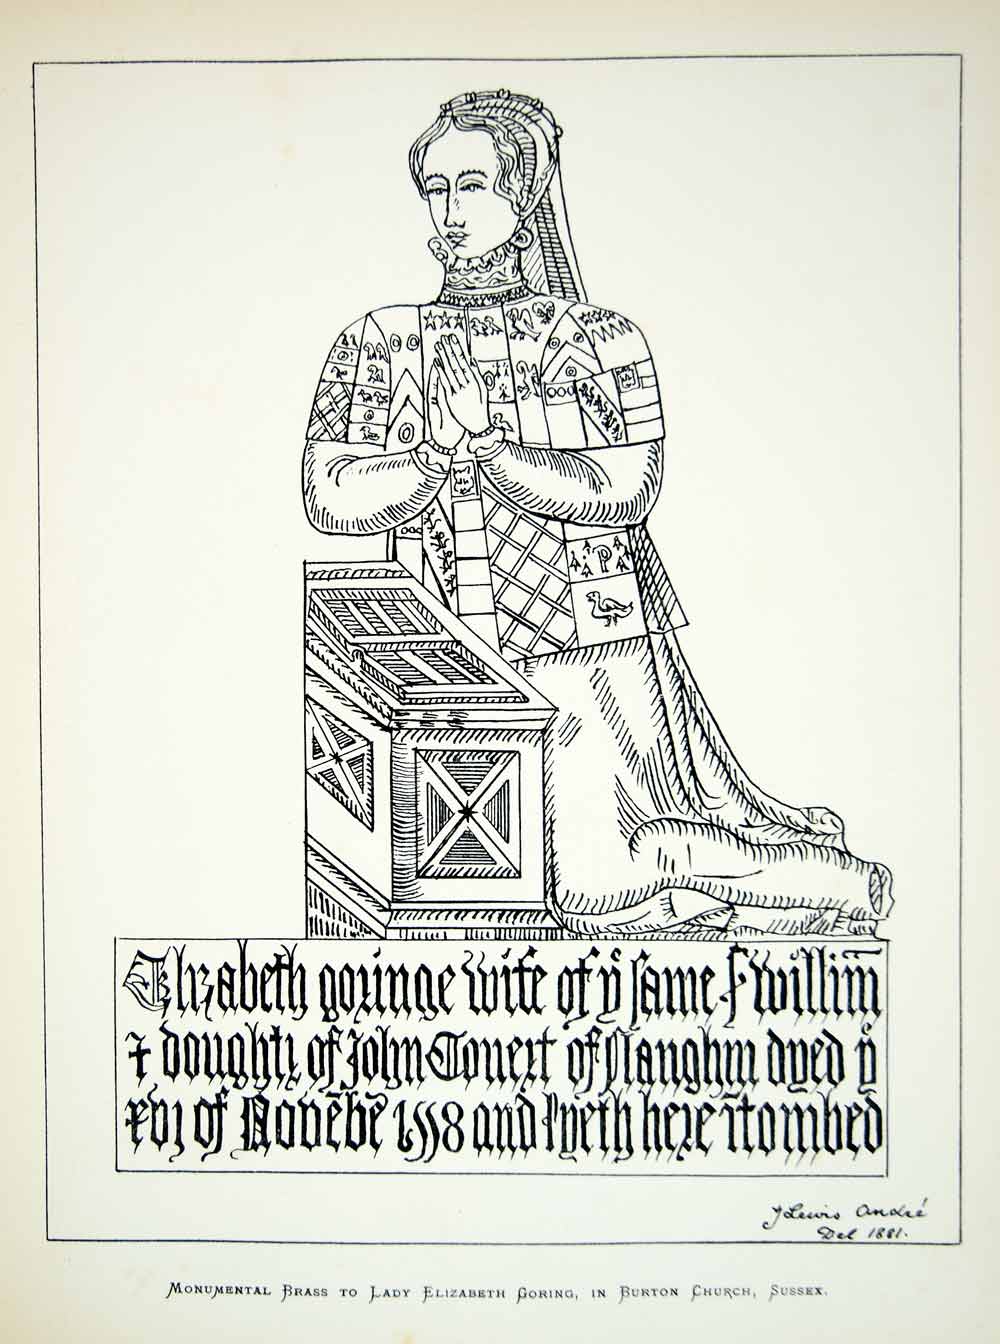 Elizabeth goringe wife of yͤ same Sʳ Willim̄
& doughtr of John Covert of Slaughm dyed yͤ
xvj of Novēbē 1558 and lyeth here ītombed
J Lewis André
Del 1881.
Monumental Brass to Lady Elizabeth Goring, in Burton Church, Sussex.